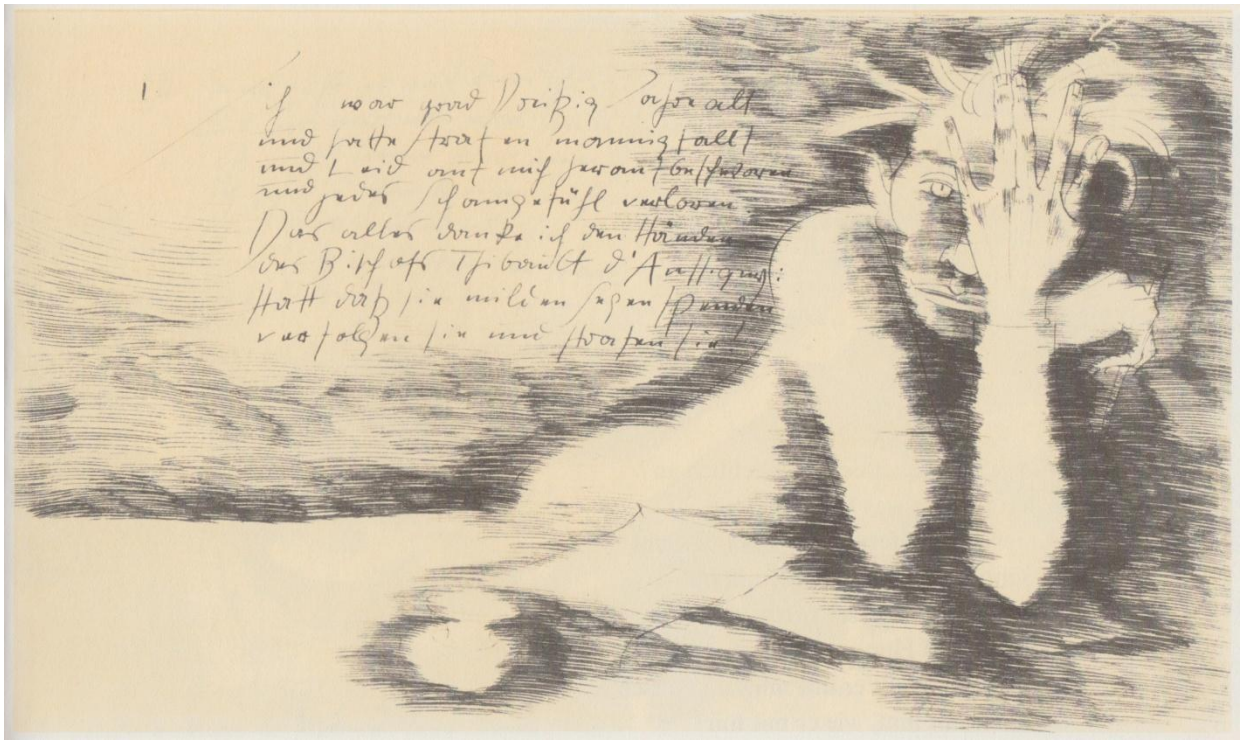 I
ich war grad Dreißig Jahre alt
und hatte Strafen mannigfallt
und Leid auf mich heraufbeschworen
und jedes Schamgefühl verloren.
Das alles danke ich den Händen
des Bischofs Thibault d'Aussigny:
statt daß sie milden Segen spenden
verfolgen sie und strafen sie